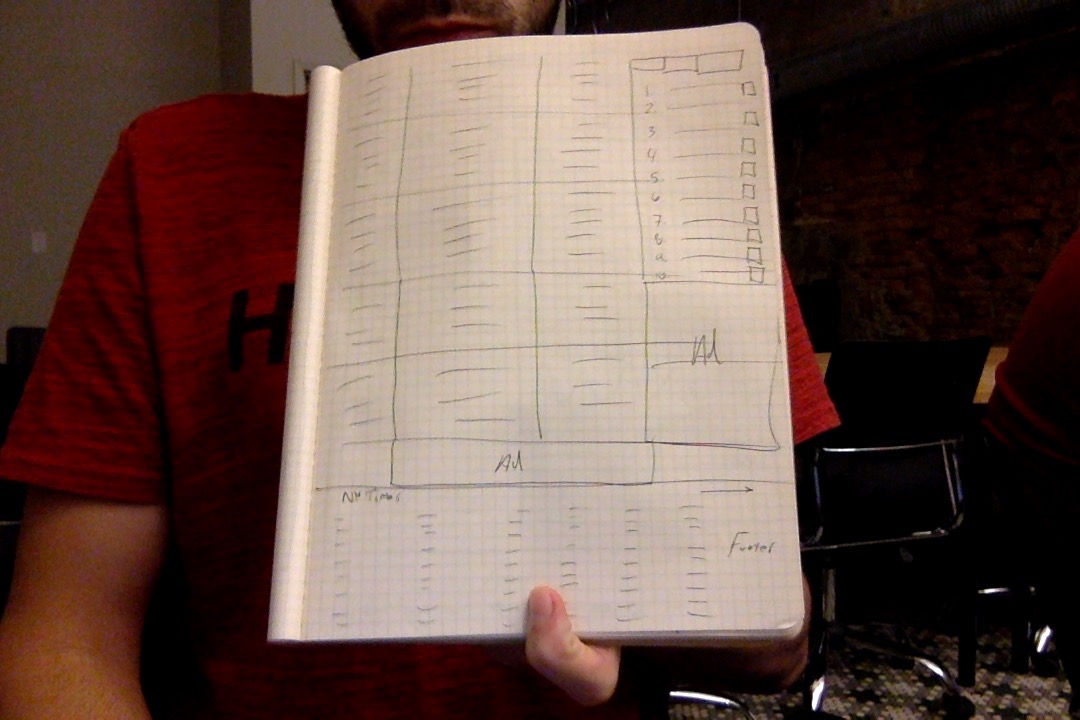 1.
2.
3
4
5.
6
7.
8
9.
10
H
Ad
Ad
NY Times
Footer